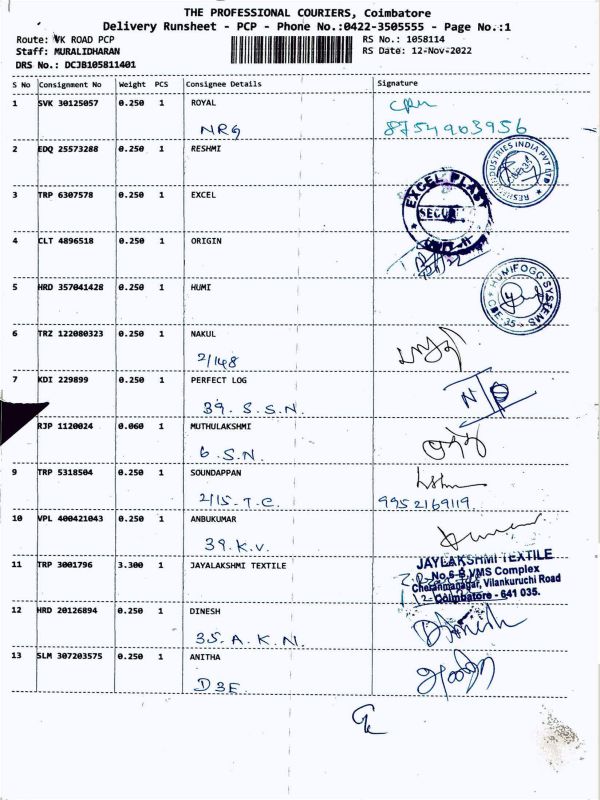 THE PROFESSIONAL COURIERS, Coimbatore
Delivery Runsheet - PCP - Phone No.:0422-3505555 - Page No.:1
Route: VK ROAD PCP
RS No.: 1058114
Staff: MURALIDHARAN
RS Date: 12-Nov-2022
DRS No.: DCJB105811401
S No Consignment No Weight PCS Consignee Details Signature
1 SVK 30125057 0.250 1 ROYAL
NRG 8754903956
2 EDQ 25573288 0.250 1 RESHMI
INDUSTRIES INDIA PVT LTD
3 TRP 6307578 0.250 1 EXCEL
EXCEL PLAST
UNIT-II
4 CLT 4896518 0.250 1 ORIGIN
5 HRD 357041428 0.250 1 HUMI
HUMIFOGG SYSTEMS
CBE-35
6 TRZ 122080323 0.250 1 NAKUL
2/148
7 KDI 229899 0.250 1 PERFECT LOG
39. S.S.N. N/D
RJP 1120024 0.060 1 MUTHULAKSHMI
6 S.N.
9 TRP 5318504 0.250 1 SOUNDAPPAN
2/15-T.C. 9952169119
10 VPL 400421043 0.250 1 ANBUKUMAR
39.K.V. Kumar
11 TRP 3001796 3.300 1 JAYALAKSHMI TEXTILE
JAYLAKSHMI TEXTILE
No.6-B VMS Complex
Cheranmanagar, Vilankuruchi Road
Coimbatore - 641 035.
12 HRD 20126894 0.250 1 DINESH
35. A.K.N. Dinesh
13 SLM 307203575 0.250 1 ANITHA
D3E